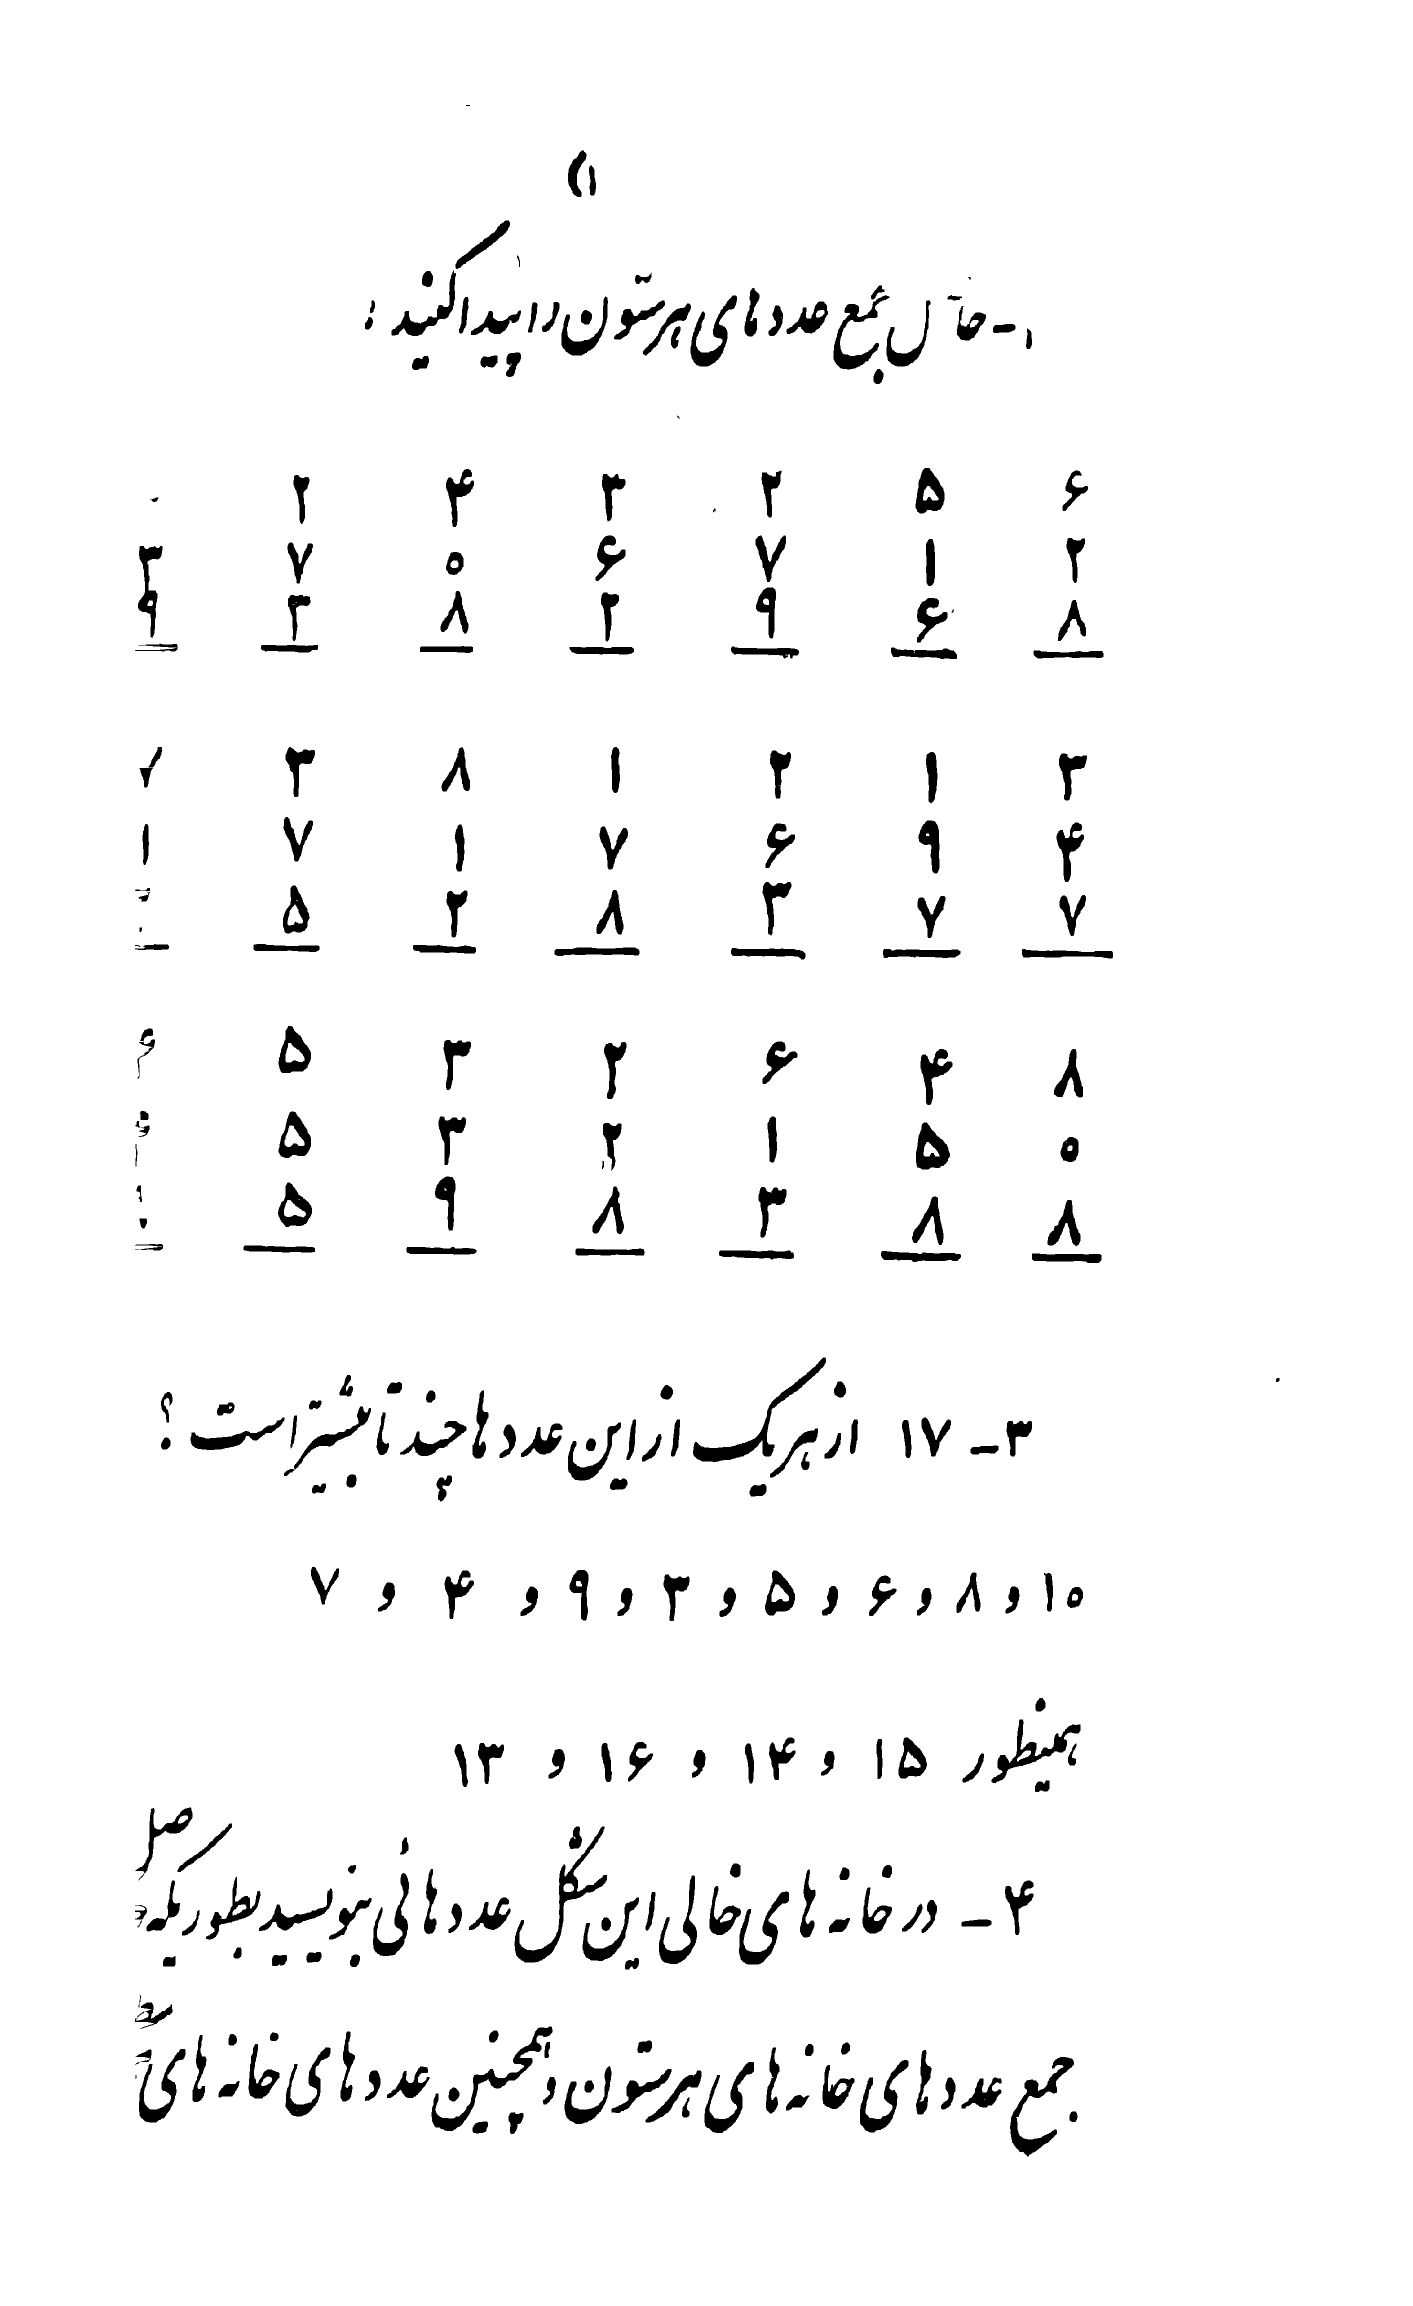 ۱ - حاصل جمع عددهای هر ستون را پیدا کنید :
۶ ۵ ۲ ۳ ۴ ۲
۲ ۱ ۷ ۶ ۰ ۷ ۳
۸ ۶ ۹ ۲ ۸ ۳ ۹
۳ ۱ ۲ ۱ ۸ ۳ ۷
۴ ۹ ۶ ۷ ۱ ۷ ۱
۷ ۷ ۳ ۸ ۲ ۵
۸ ۴ ۶ ۲ ۳ ۵ ۶
۰ ۵ ۱ ۲ ۳ ۵
۸ ۸ ۳ ۸ ۹ ۵
۳ - ۱۷ از هر یک از این عددها چند تا بیشتر است ؟
۱۰ و ۸ و ۶ و ۵ و ۳ و ۹ و ۴ و ۷
همینطور ۱۵ و ۱۴ و ۱۶ و ۱۳
۴ - در خانه های خالی این شکل عددهائی بنویسید بطوریکه حاصل
جمع عددهای خانه های هر ستون و همچنین عددهای خانه های